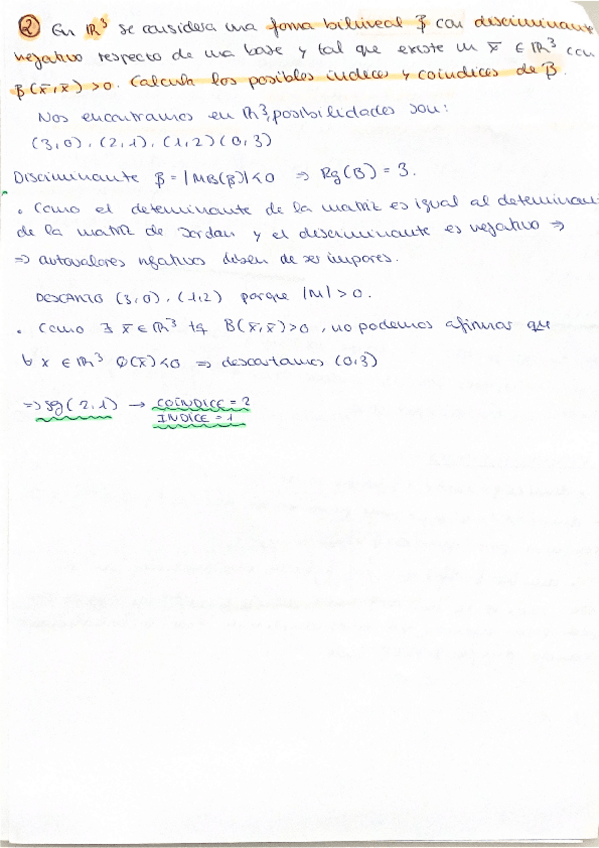 ② En ℝ³ se considera una forma bilineal β con discriminante
negativo respecto de una base y tal que existe un x̄ ∈ ℝ³ con
β(x̄,x̄) >0. Calcula los posibles índices y coíndices de β.
Nos encontramos en ℝ³, posibilidades son:
(3,0), (2,1), (1,2) (0,3)
Discriminante β = |MB(β)| <0 ⇒ Rg(B) = 3.
• Como el determinante de la matriz es igual al determinan
de la matriz de Jordan y el descriminante es negativo ⇒
⇒ autovalores ngativos deben de ser impares.
DESCARTO (3,0), (1,2) porque |M| > 0.
• Como ∃ x̄ ∈ ℝ³ tq B(x̄,x̄) >0, no podemos afirmar que
∀ x ∈ ℝ³ Q(x̄) <0 ⇒ descartamos (0,3)
⇒ sg(2,1) → COÍNDICE = 2
ÍNDICE = 1